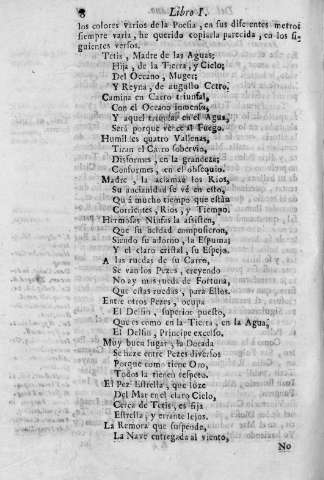 8 Libro I.
los colores varios de la Poesia, en sus diferentes metros
siempre varia, he querido copiarla parecida, en los si-
guientes versos.
Tetis, Madre de las Aguas;
Hija, de la Tierra, y Cielo;
Del Oceano, Muger;
Y Reyna, de augusto Cetro.
Camina en Carro triunfal,
Con el Oceano inmenso,
Y aquel triunfar en el Agua,
Será porque vence al Fuego.
Humildes quatro Vallenas,
Tiran el Carro sobervio,
Disformes, en la grandeza;
Conformes, en el obsequio.
Madre, la aclaman los Rios,
Su ancianidad se vé en esto,
Quà mucho tiempo que estàn
Corrientes, Rios, y Tiempo.
Hermosas Ninfas la assisten,
Que su beldad compusieron,
Siendo su adorno, la Espuma;
Y el claro cristal, su Espejo.
A las ruedas de su Carro,
Se van los Pezes, creyendo
No ay mas rueda de Fortuna,
Que estas ruedas, para Ellos.
Entre otros Pezes, ocupa
El Delfin, superior puesto,
Que es como en la Tierra, en la Agua,
El Delfin, Principe excelso.
Muy buen lugar, la Dorada
Se haze entre Pezes diversos
Porque como tiene Oro,
Todos la tienen respeto.
El Pez Estrella, que luze
Del Mar en el claro Cielo,
Cerca de Tetis, es fija
Estrella, y errante lejos.
La Remora que suspende,
La Nave entregada al viento,
No